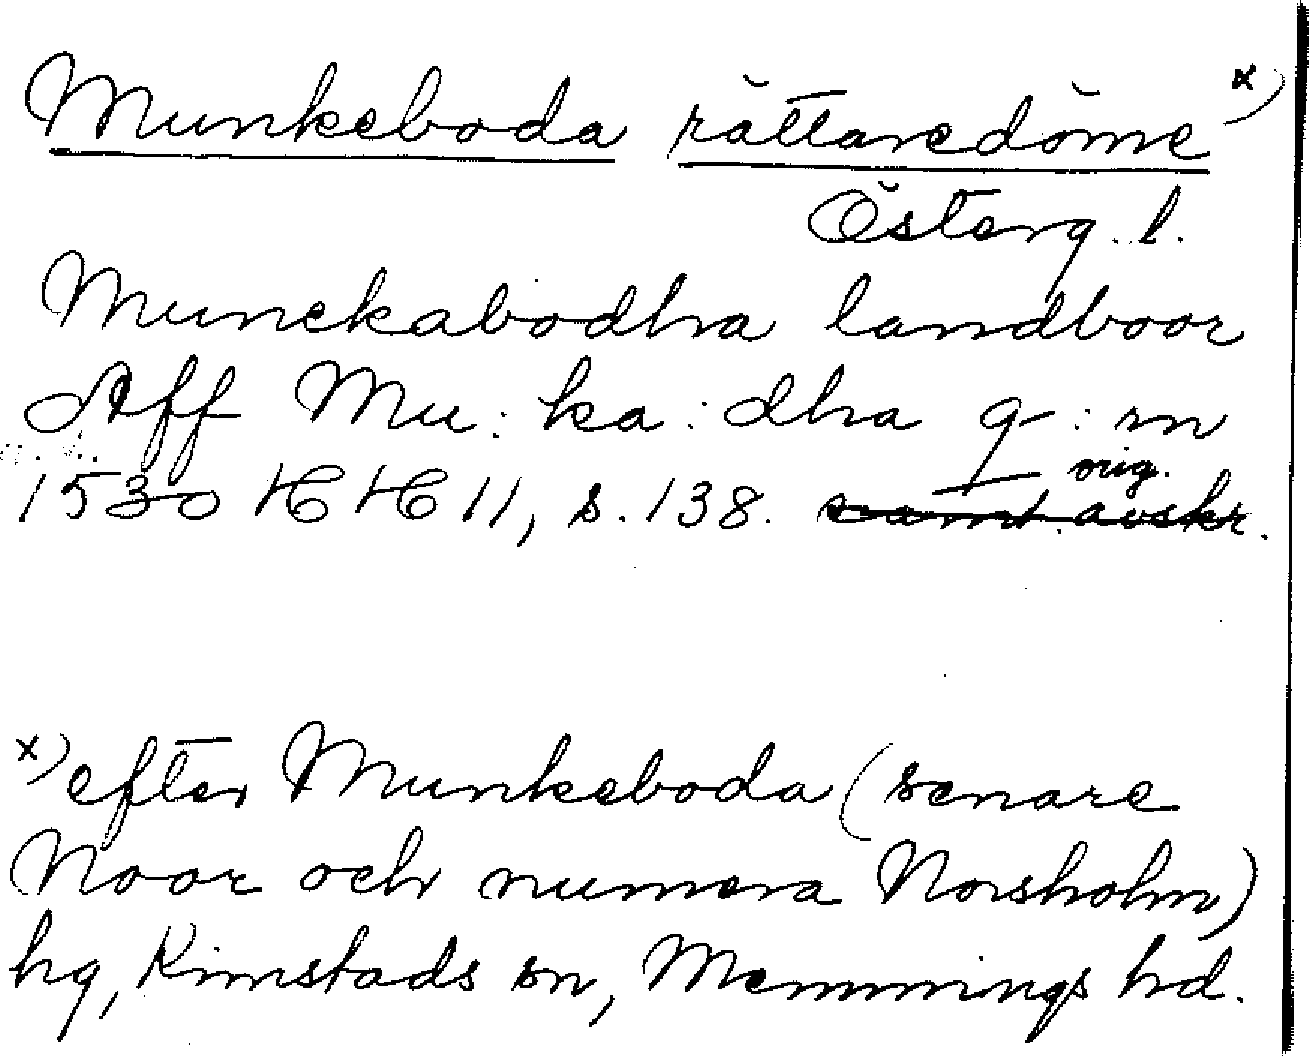 Munkeboda rättaredöme x)
Österg. l.
Munckabodha landboor
Aff Mu: ka: dha g: m
1530 HH 11, s. 138. orig.
x) efter Munkeboda (senare
Noor och numera Norsholm)
hg, Kimstads sn, Memmings hd.